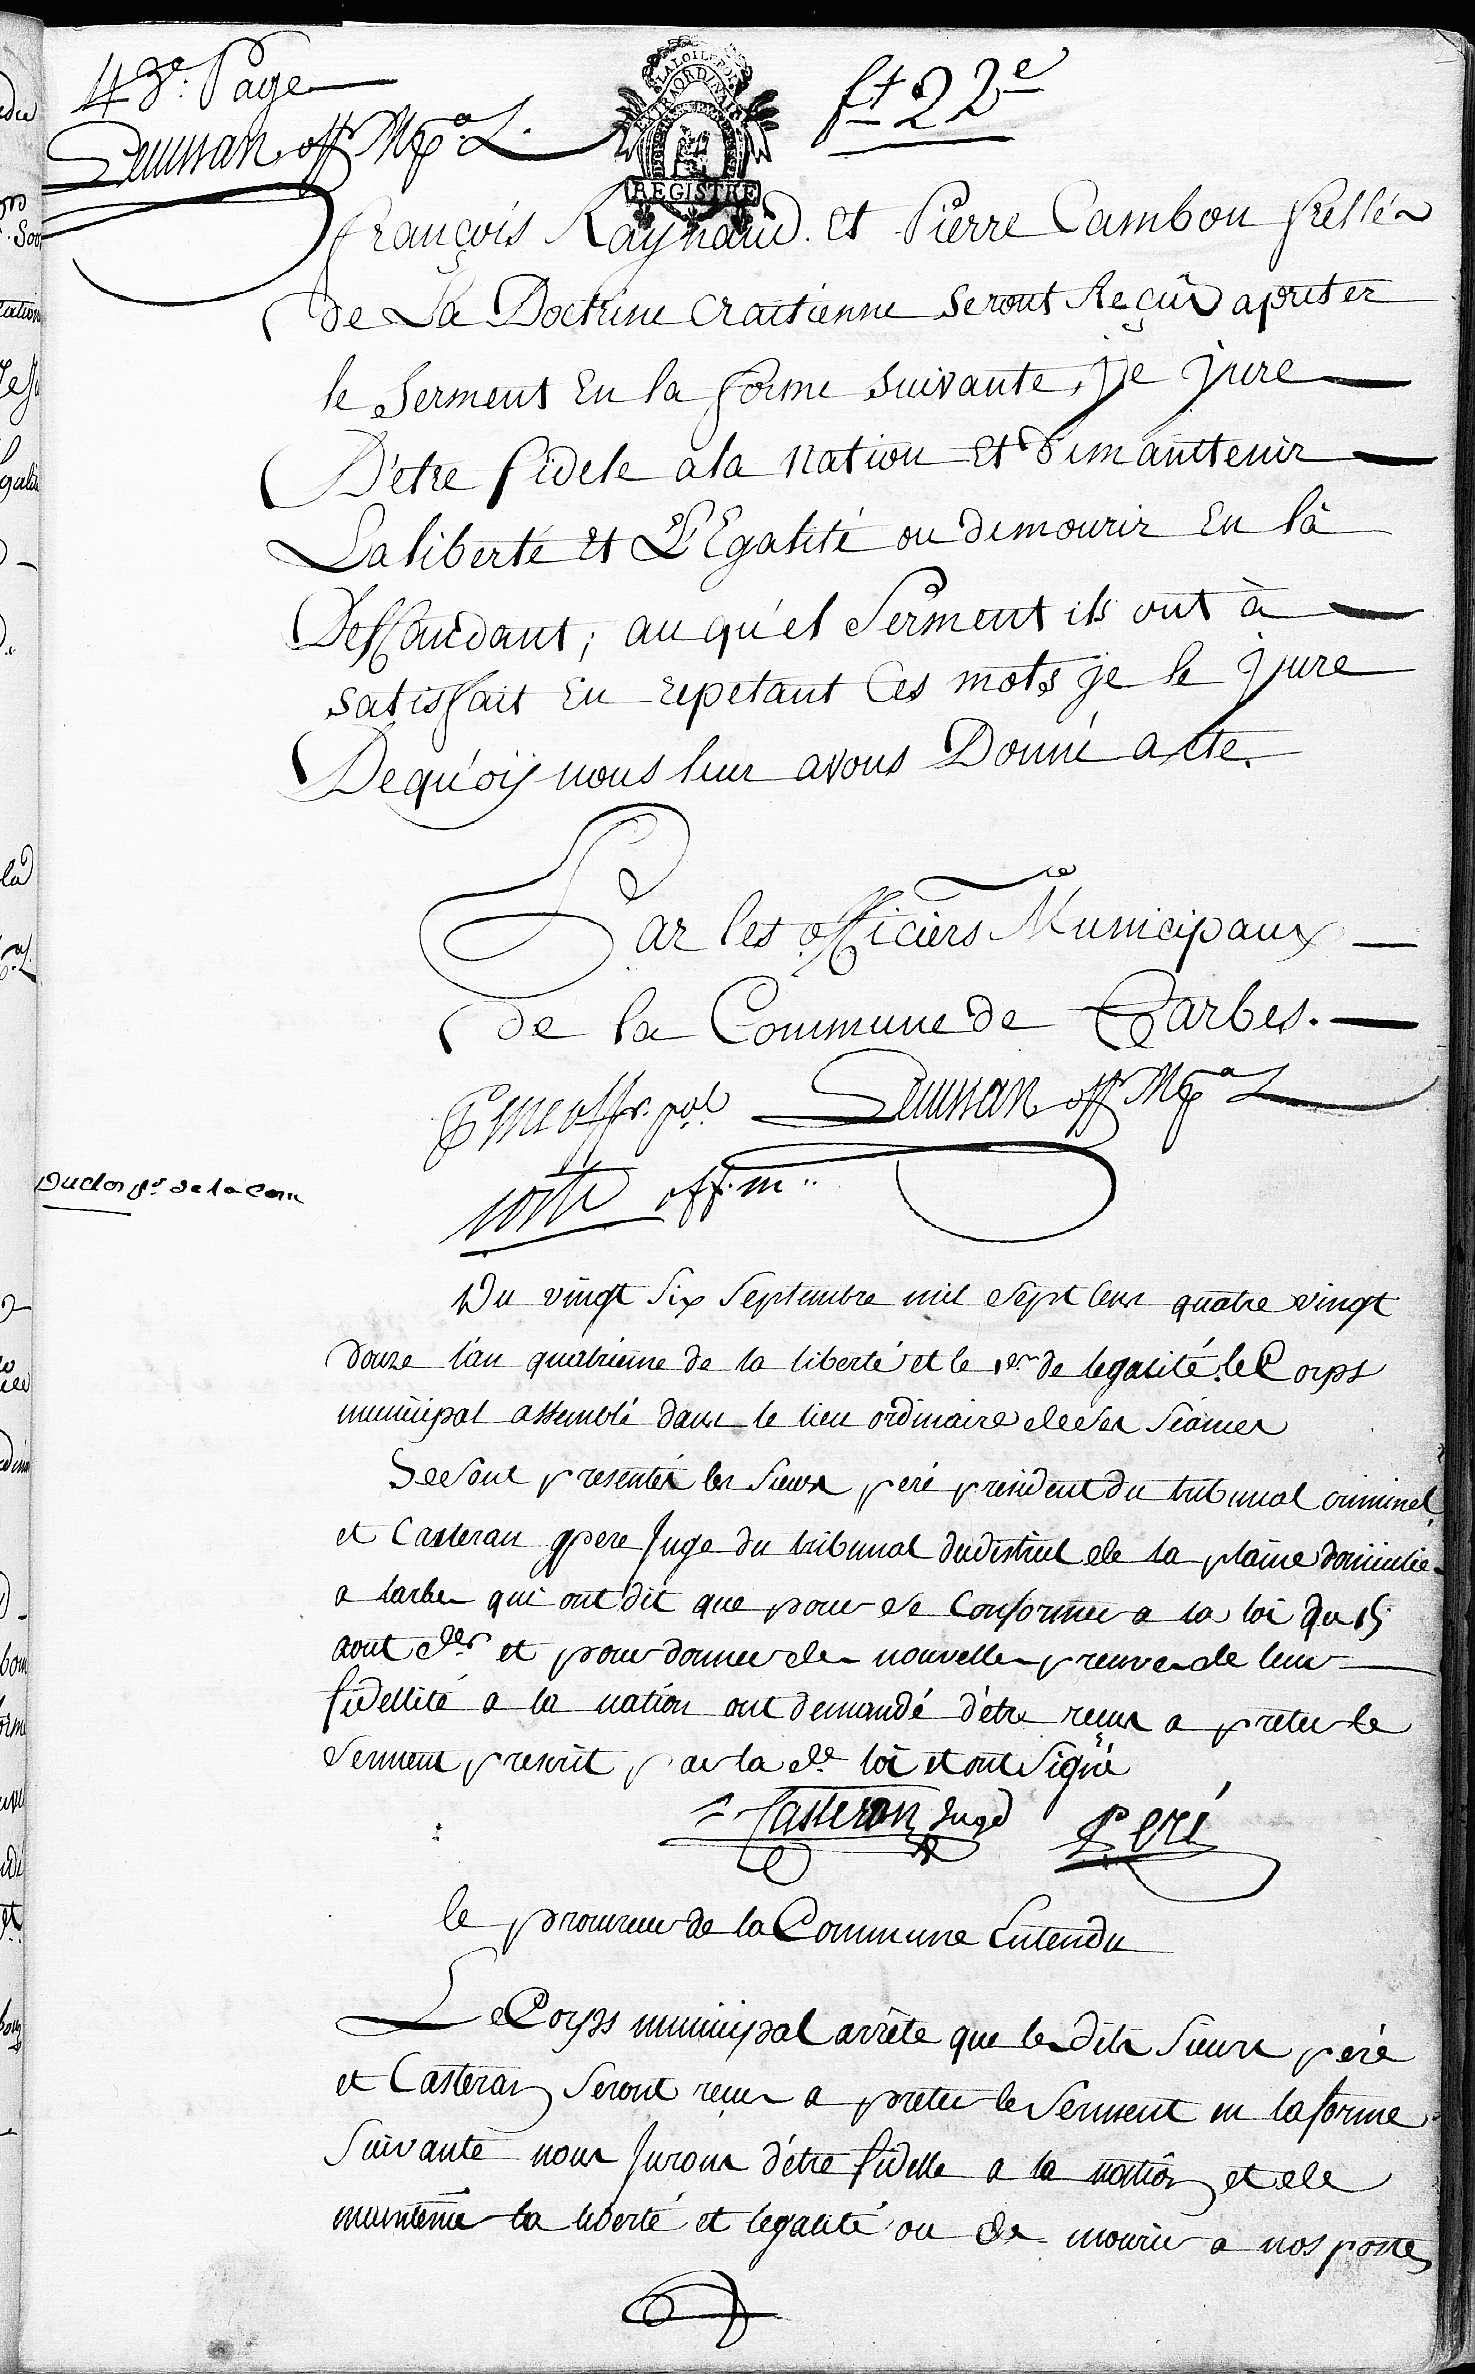 43e. Page
ft 22e
LA LOI LE ROI
EXTRAORDINAIRE
REGISTRE
off Mpal
françois Raynaud. et Pierre Cambou frellé
de La Doctrine Craitienne seront Reçûs apreter
le Serment En la forme suivante, je jure
D'etre fidele ala nation Et demainttenir
La liberté et L'Egalité ou demourir En là
Deffandant; auqu'el Serment ils ont à
satisfait En repetant Ces mots je le jure
Dequ'oij nous leur avons Donné acte.
Par les officiers Municipaux
de la Commune de Tarbes.
off Mpal
off. m
Duclos pr de la Com
Du vingt Six Septembre mil Sept Cens quatre vingt
douze l'an quatrieme de la liberté et le 1er de legalité. le Corps
municipal assemblé dans le lieu ordinaire de ses séances
Se sont presentés les Sieurs peré president du tribunal criminel
et Casteran pere Juge du tribunal du district de la plaine domicilie
a tarbes qui ont dit que pour se Conformer a la loi du 15
aout der et pour donner de nouvelles preuves de leur
fidellité a la nation ont demandé d'étre reçus a preter le
Serment prescrit par la de loi et ont signé
Casteran Juge Peré
le procureur de la Commune Entendu
Le Corps municipal arrête que lesdits Sieurs peré
et Casteran Seront reçus a preter le Serment en la forme
Suivante nous Jurons d'étre fidelle a la nation et de
maintenir la liberté et legalité ou de mourir a nos postes